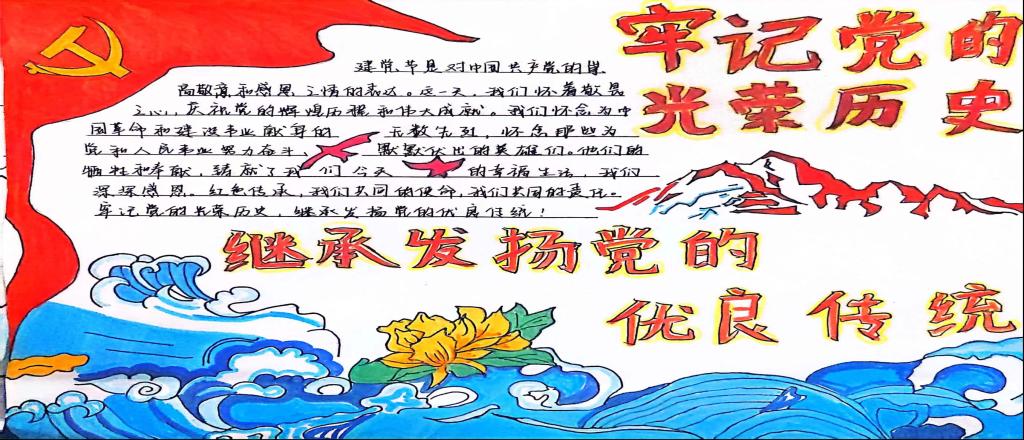 牢记党的
光荣历史
建党节是对中国共产党的崇
高敬意和感恩之情的表达。这一天，我们怀着敬畏
之心，庆祝党的辉煌历程和伟大成就。我们怀念为中
国革命和建设事业献身的无数先烈，怀念那些为
党和人民事业努力奋斗、默默付出的英雄们。他们的
牺牲和奉献，铸就了我们今天的幸福生活，我们
深深感恩。红色传承，我们共同的使命，我们共同的责任。
牢记党的光荣历史，继承发扬党的优良传统！
继承发扬党的
优良传统